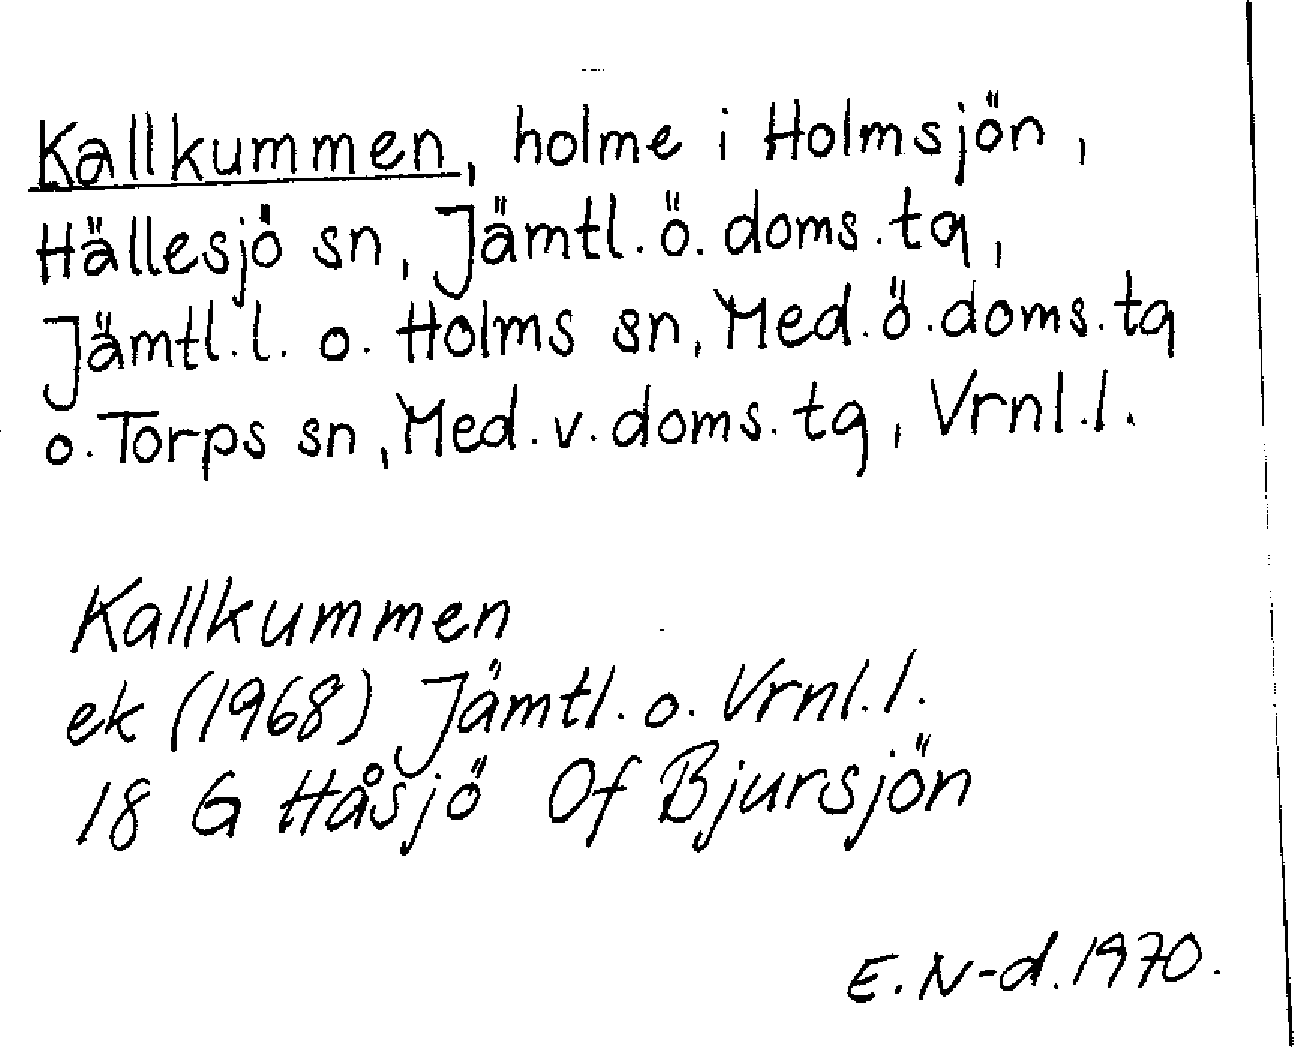 Kallkummen, holme i Holmsjön,
Hällesjö sn, Jämtl. ö. doms. tg,
Jämtl. l. o. Holms sn, Med. ö. doms. tg
o. Torps sn, Med. v. doms. tg, Vrnl. l.
Kallkummen
ek (1968) Jämtl. o. Vrnl. l.
18 G Håsjö Of Bjursjön
E. N-d. 1970.